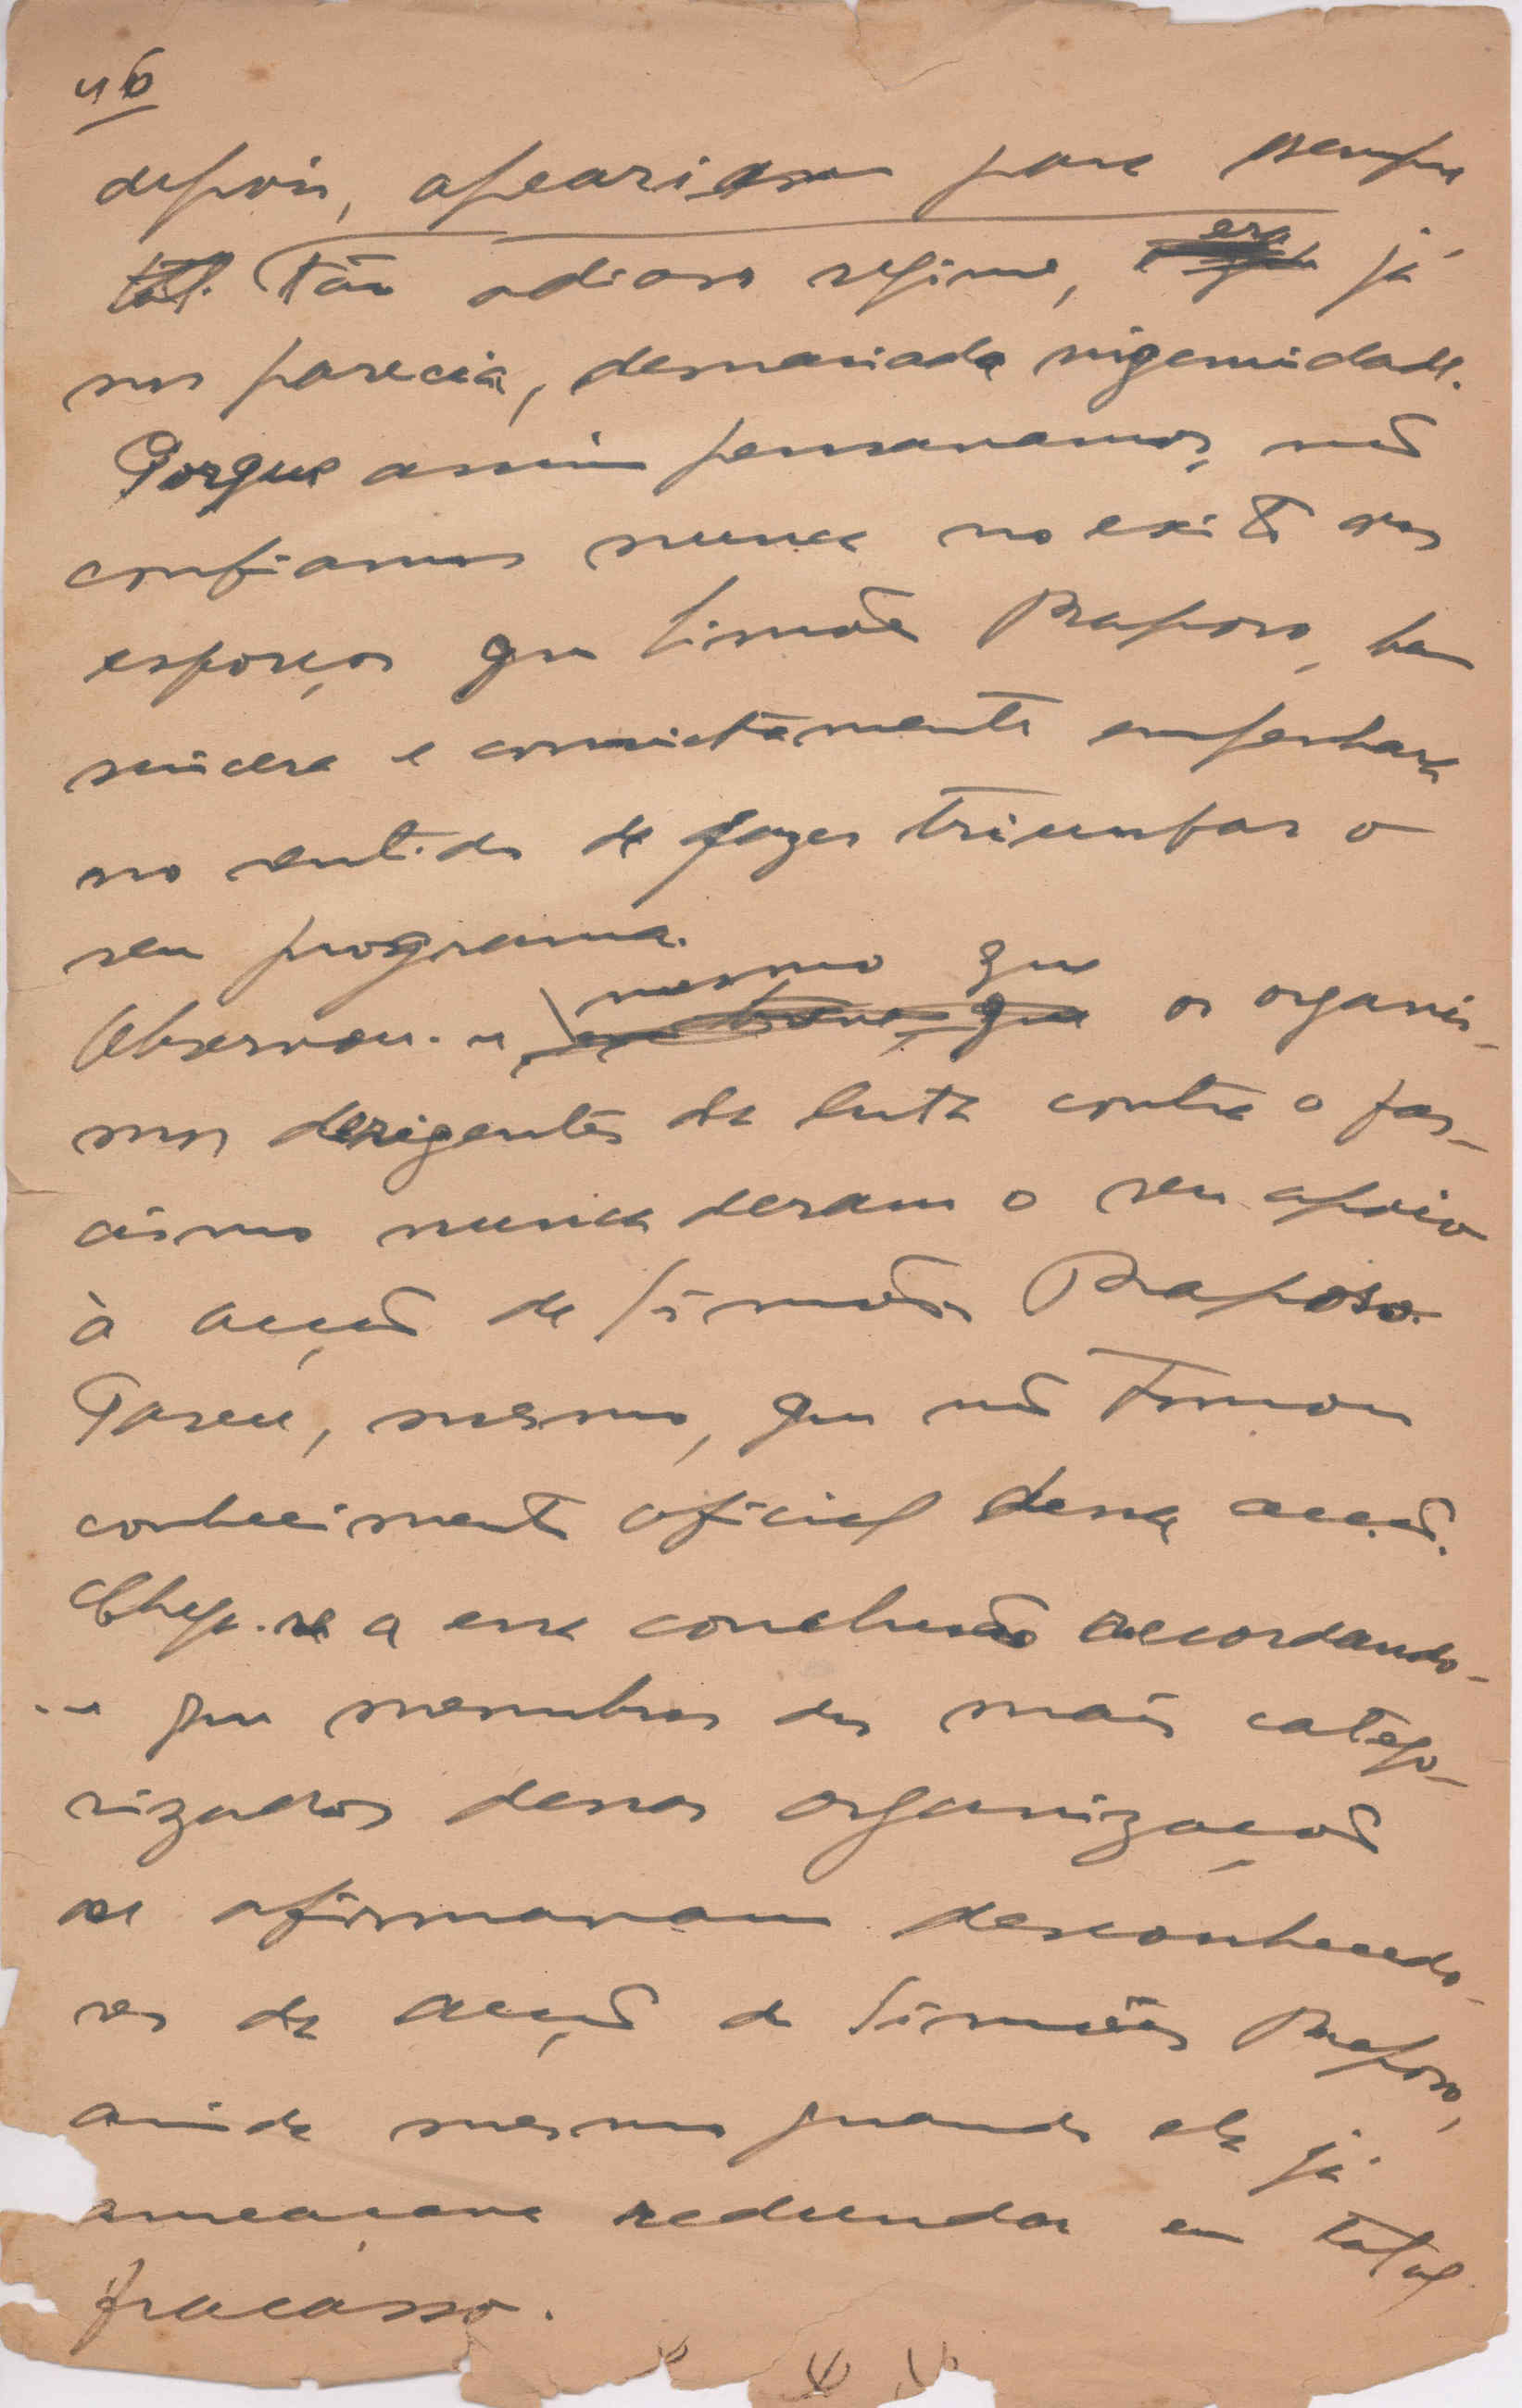 46
depois, apeariam para sempre
tão odioso regime, era já
nos parecia, demasiada ingenuidade.
Porque assim pensavamos, não
confiamos nunca no exito dos
esforços que Simões Raposo, tam
sincera e convictamente empenhara
no sentido de fazer triumfar o
seu programa.
Observou-se mesmo que os organis-
mos derigentes da luta contra o fas-
cismo nunca deram o seu apoio
à acção de Simões Raposo.
Parece, mesmo, que não tomou
conhecimento oficial dessa acção.
Chega-se a essa conclusão recordando-
-se que membros dos mais catego-
rizados dessas organização
se afirmavam desconhecedo-
res da acção de Simões Raposo,
ainda mesmo quando ela já
ameaçava redundar em total
fracasso.